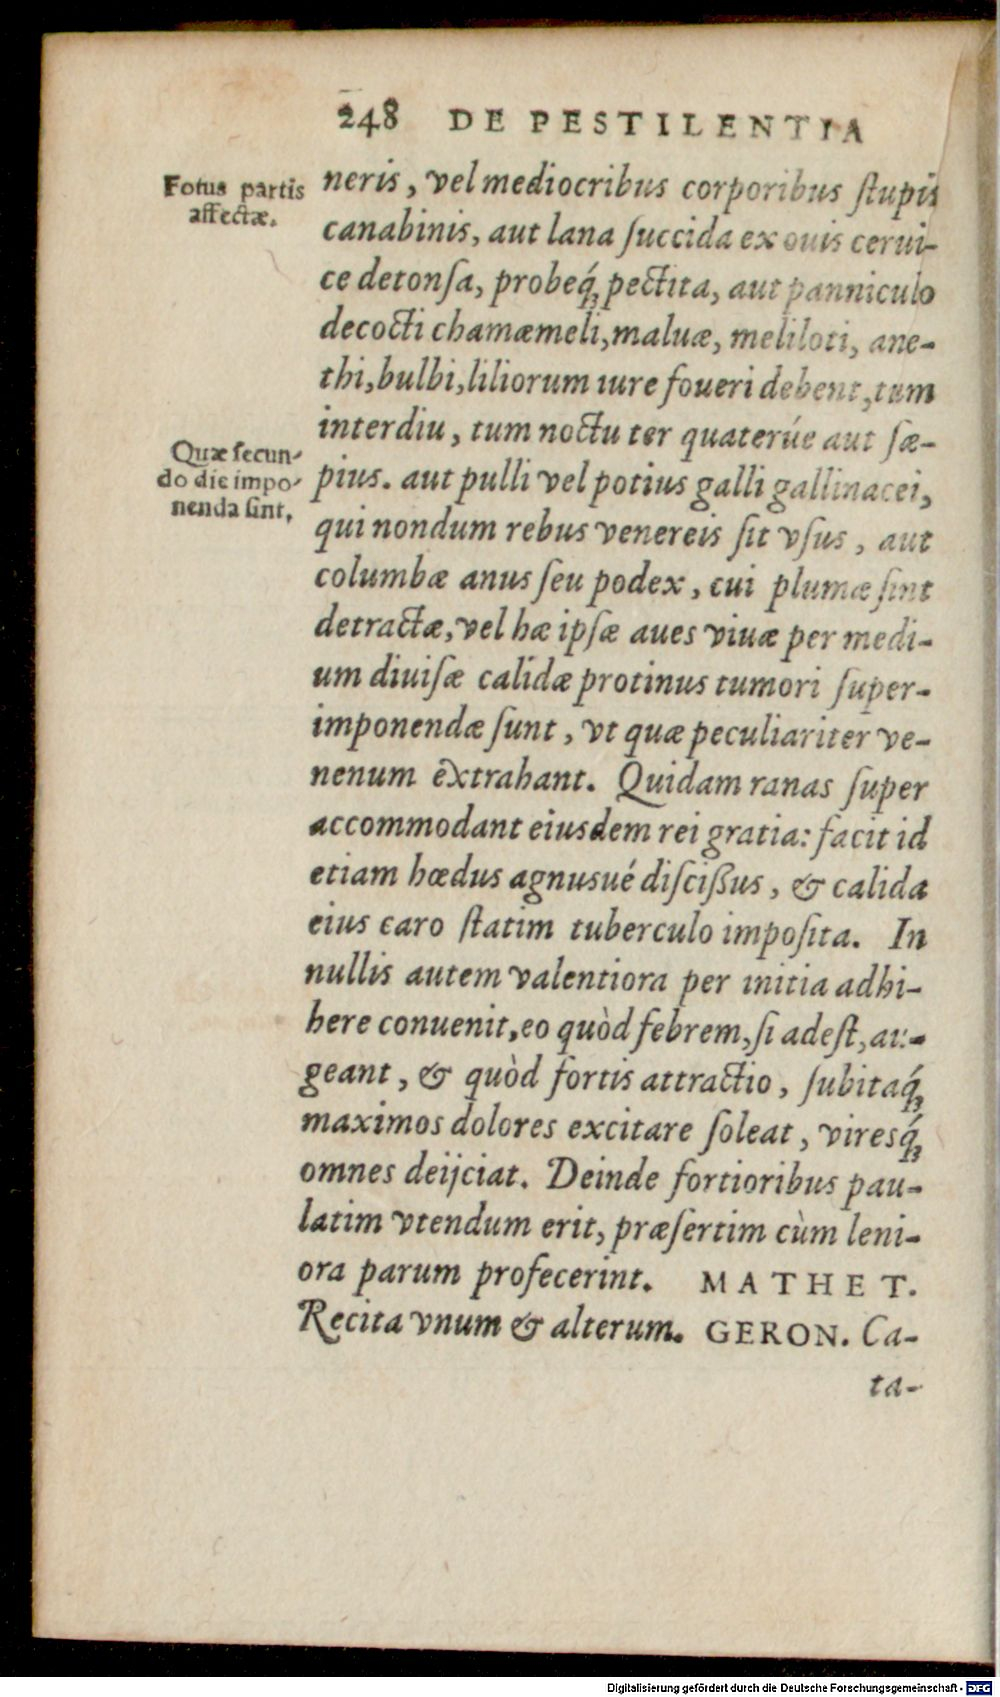 248 DE PESTILENTIA
Fotus partis
affectæ.
neris, vel mediocribus corporibus ſtupis
canabinis, aut lana ſuccida ex ouis cerui-
ce detonſa, probeq́; pectita, aut panniculo
decocti chamæmeli, maluæ, meliloti, ane-
thi, bulbi, liliorum iure foueri debent, tum
interdiu, tum noctu ter quaterúe aut ſæ-
Quæ ſecun-
do die impo-
nenda ſint.
pius. aut pulli vel potius galli gallinacei,
qui nondum rebus venereis ſit vſus, aut
columbæ anus ſeu podex, cui plumæ ſint
detractæ, vel hæ ipſæ aues viuæ per medi-
um diuiſæ calidæ protinus tumori ſuper-
imponendæ ſunt, vt quæ peculiariter ve-
nenum extrahant. Quidam ranas ſuper
accommodant eiusdem rei gratia: facit id
etiam hœdus agnusué diſciſſus, & calida
eius caro ſtatim tuberculo impoſita. In
nullis autem valentiora per initia adhi-
bere conuenit, eo quòd febrem, ſi adeſt, au-
geant, & quòd fortis attractio, ſubitaq́;
maximos dolores excitare ſoleat, viresq́;
omnes deijciat. Deinde fortioribus pau-
latim vtendum erit, præſertim cùm leni-
ora parum profecerint. MATHET.
Recita vnum & alterum. GERON. Ca-
ta-
Digitalisierung gefördert durch die Deutsche Forschungsgemeinschaft - DFG